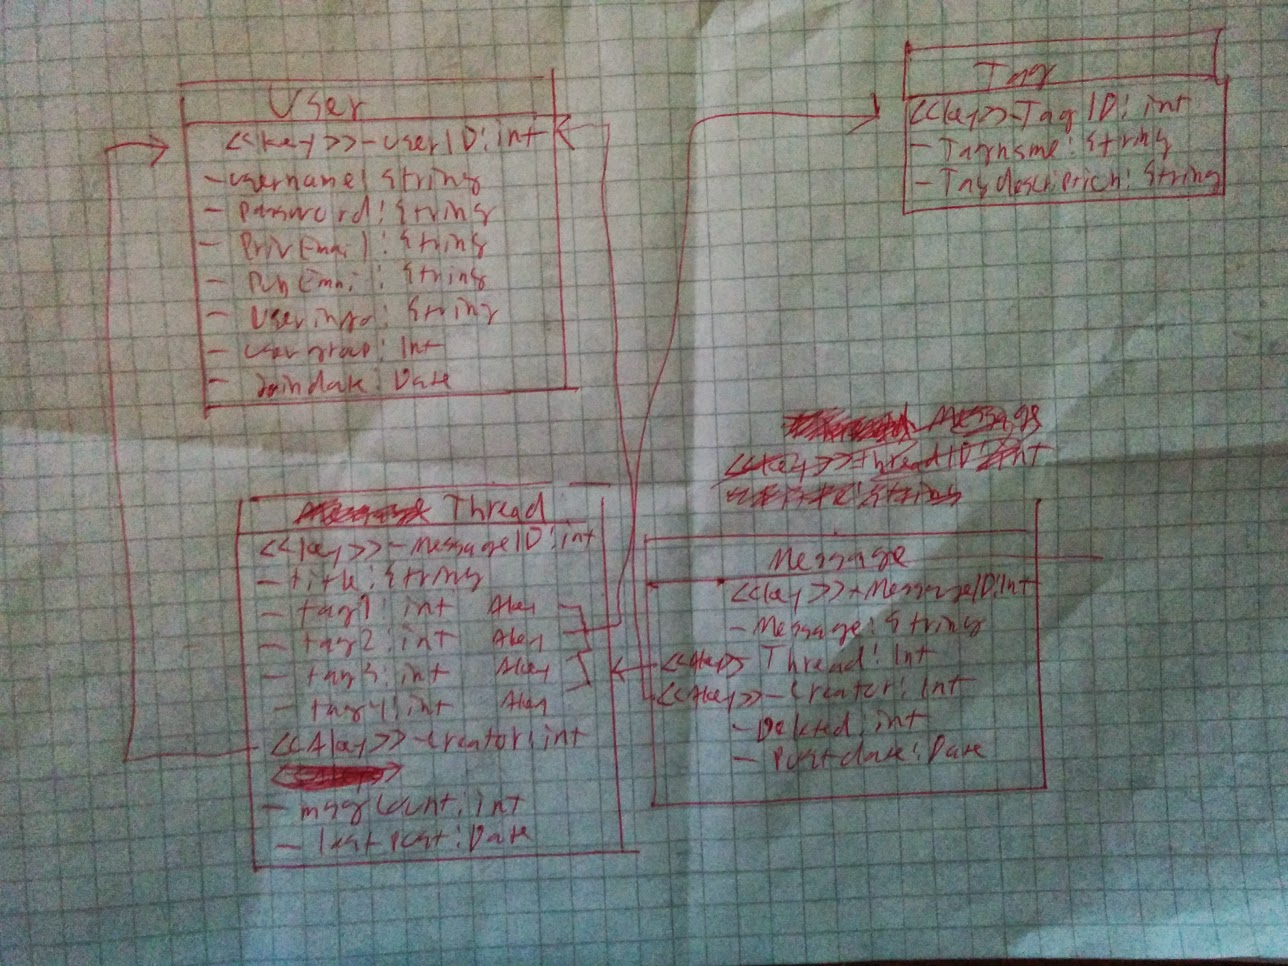 User
<<key>>-userID:int
-username: String
- Password: String
- PrivEmail: String
- PubEmai : String
- Userinfo: String
- usergroup: Int
- Joindate: Date
Tag
<<key>>-TagID: int
- Tagname: String
- Tagdescription: String
Message
<<key>>-threadID:int
String
Thread
<<key>>-MessageID:int
- title: String
- tag1: int Akey
- tag2: int Akey
- tag3: int Akey
- tag4: int Akey
<<Akey>>-Creator: int
- msgcount: int
- lastpost: Date
Message
<<key>>+MessageID:Int
- Message: String
<<Akey>> Thread: Int
<<Akey>>-Creator: Int
- Deleted: int
- Postdate: Date